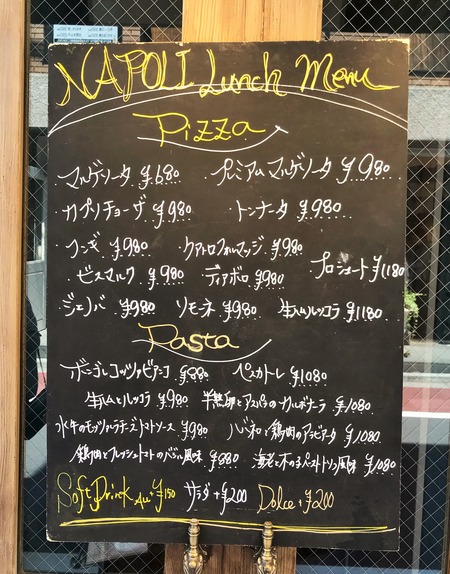 NAPOLI Lunch Menu
Pizza
・マルゲリータ ¥680 ・プレミアムマルゲリータ ¥980
・カプリチョーザ ¥980 ・トンナータ ¥980
・フンギ ¥980 ・クアトロフォルマッジ ¥980
・ビスマルク ¥980 ・ディアボロ ¥980 ・プロシュート ¥1180
・ジェノバ ¥980 ・リモーネ ¥980 ・生ハムルッコラ ¥1180
Pasta
・ボンゴレコッツェビアンコ ¥880 ・ペスカトーレ ¥1080
・生ハムとルッコラ ¥980 ・半熟卵とアスパラのカルボナーラ ¥1080
・水牛のモッツァレラチーズトマトソース ¥980 ・ハバネロと鶏肉のアラビアータ ¥1080
・鶏肉とフレッシュトマトのバジル風味 ¥880 ・海老ときのこペーストトリュフ風味 ¥1080
Soft Drink All+¥150 サラダ+¥200 Dolce+¥200